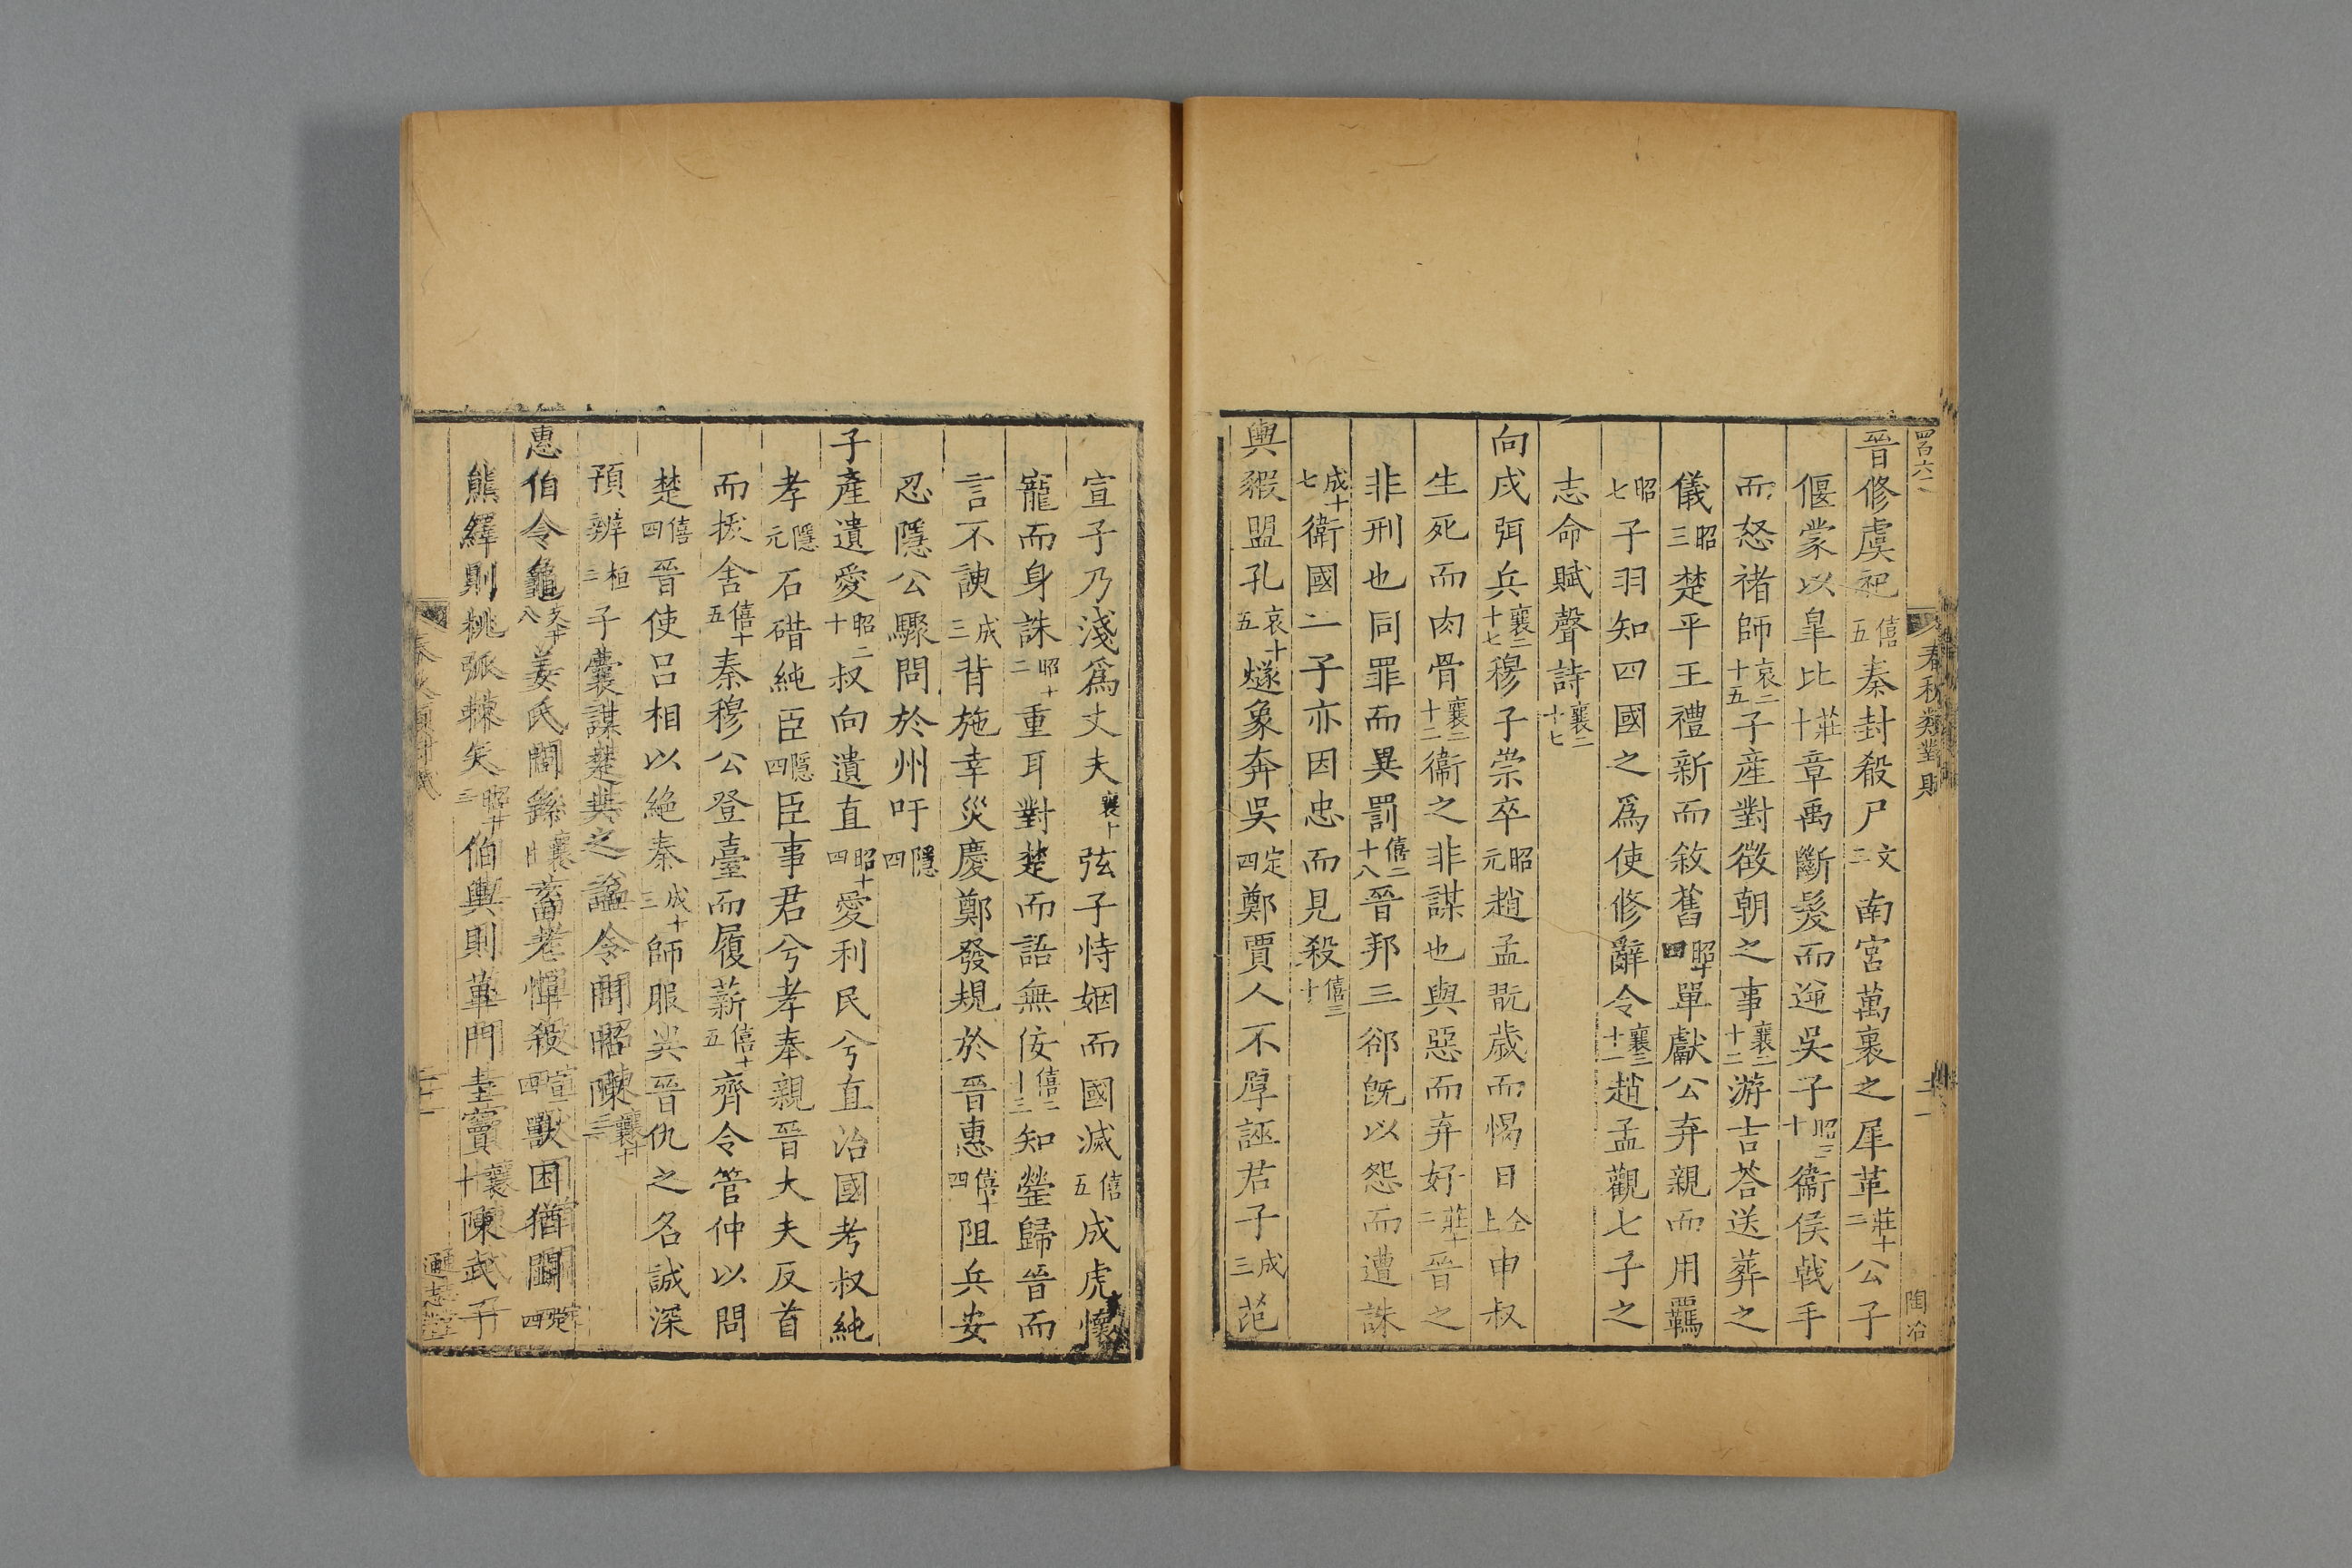 四百六二
春秋類對賦
陶冶
晉修虞祀僖五秦封殺尸文三南宮萬裹之犀革莊十二公子
偃蒙以臯比莊十章禹斷髮而逆吳子昭三十衞侯戟手
而怒禇師哀二十五子產對徵朝之事襄二十二游吉荅送葬之
儀昭三楚平王禮新而敘舊昭十四單獻公弃親而用羈
昭七子羽知四國之爲使修辭令襄三十一趙孟觀七子之
志命賦聲詩襄二十七
向戌弭兵襄二十七穆子崇卒昭元趙孟翫歲而愒日仝上申叔
生死而肉骨襄二十二衞之非謀也與惡而弃好莊十二晉之
非刑也同罪而異罰僖二十八晉邦三郤旣以怨而遭誅
成十七衛國二子亦因忠而見殺僖三十
輿豭盟孔哀十五燧象奔吳定四鄭賈人不厚誣君子成三范
宣子乃淺爲丈夫襄十弦子恃姻而國滅僖五成虎懷
寵而身誅昭十二重耳對楚而語無佞僖二十三知罃歸晉而
言不諛成三背施幸災慶鄭發規於晉惠僖十四阻兵安
忍隱公驟問於州吁隱四
子產遺愛昭二十叔向遺直昭十四愛利民兮直治國考叔純
孝隱元石碏純臣隱四臣事君兮孝奉親晉大夫反首
而拔舍僖十五秦穆公登臺而履薪僖十五齊令管仲以問
楚僖四晉使呂相以絶秦成十三師服興晉仇之名誠深
預辨桓二子囊謀楚共之謚令聞昭陳襄十三
惠伯令龜文十八姜氏聞繇襄畜老憚殺宣四獸困猶鬬定四
熊繹則桃弧棘矢昭十二伯輿則蓽門圭竇襄十陳武子
通志堂